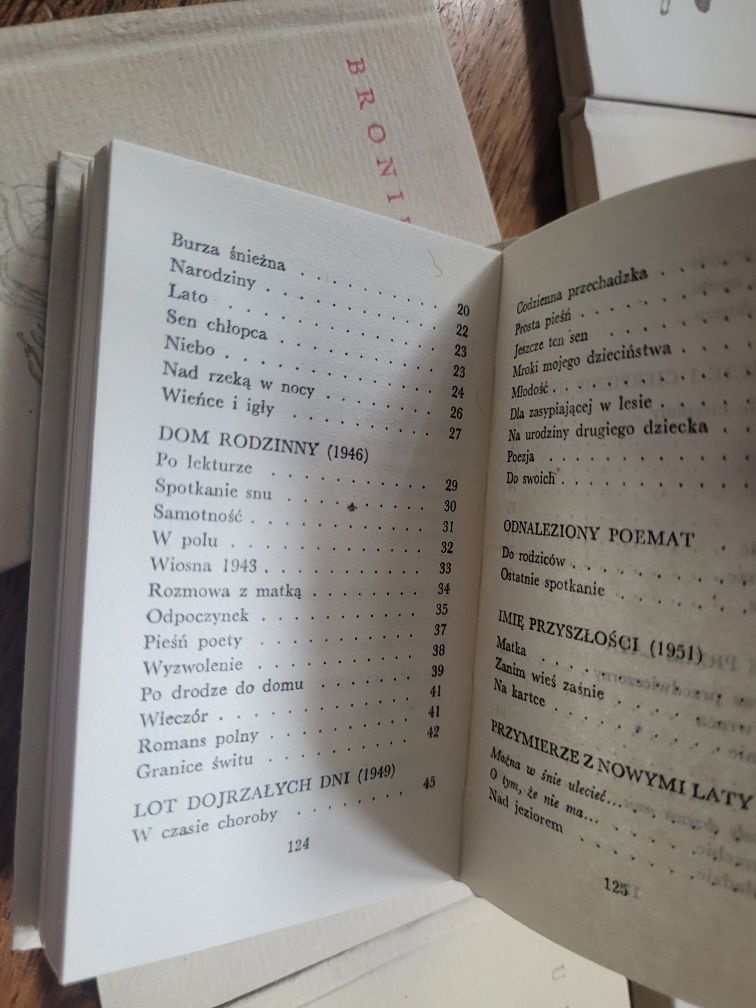 BRONI
Burza śnieżna . . . . . . . . . . 20
Narodziny . . . . . . . . . . . 22
Lato . . . . . . . . . . . . . 23
Sen chłopca . . . . . . . . . . 23
Niebo . . . . . . . . . . . . 24
Nad rzeką w nocy . . . . . . . 26
Wieńce i igły . . . . . . . . . 27
DOM RODZINNY (1946)
Po lekturze . . . . . . . . . . 29
Spotkanie snu . . . . . . . . . 30
Samotność . . . . . . . . . . . 31
W polu . . . . . . . . . . . . 32
Wiosna 1943 . . . . . . . . . . 33
Rozmowa z matką . . . . . . . . 34
Odpoczynek . . . . . . . . . . 35
Pieśń poety . . . . . . . . . . 37
Wyzwolenie . . . . . . . . . . 38
Po drodze do domu . . . . . . . 39
Wieczór . . . . . . . . . . . . 41
Romans polny . . . . . . . . . 41
Granice świtu . . . . . . . . . 42
LOT DOJRZAŁYCH DNI (1949)
W czasie choroby . . . . . . . 45
124
Codzienna przechadzka . . . .
Prosta pieśń . . . . . . .
Jeszcze ten sen . . . . . .
Mroki mojego dzieciństwa . . .
Młodość . . . . . . . . .
Dla zasypiającej w lesie . . . .
Na urodziny drugiego dziecka . .
Poezja . . . . . . . . .
Do swoich . . . . . . . .
ODNALEZIONY POEMAT .
Do rodziców . . . . . . .
Ostatnie spotkanie . . . . .
IMIĘ PRZYSZŁOŚCI (1951)
Matka . . . . . . . . .
Zanim wieś zaśnie . . . . .
Na kartce . . . . . . . .
PRZYMIERZE Z NOWYMI LATY
Można w śnie ulecieć... . . . .
O tym, że nie ma... . . . . .
Nad jeziorem . . . . . . .
125